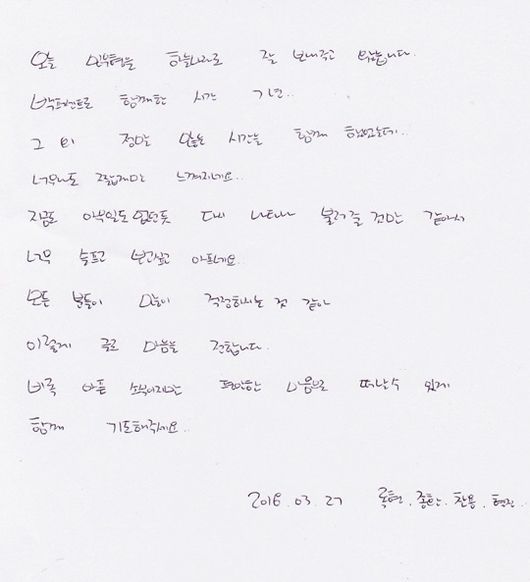 오늘 민우형을 하늘나라로 잘 보내주고 왔습니다.
백퍼센트로 함께한 시간 7년..
그 외 정말 많은 시간을 함께 했었는데..
너무나도 짧게만 느껴지네요..
지금도 아무일도 없던듯 다시 나타나 불러줄 것만 같아서
너무 슬프고 보고싶고 아프네요.
모든 분들이 많이 걱정하시는 것 같아
이렇게 글로 마음을 전합니다.
비록 아픈 소식이지만 편안한 마음으로 떠날수 있게
함께 기도해주세요..
2018.03.27 록현, 종환, 찬용, 혁진.